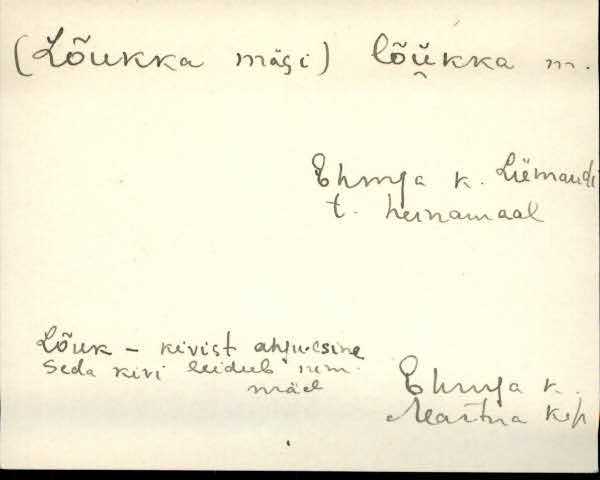 (Lõukka mägi) lõŭ̯kka m.
Ehmja k. Liemandi
t. heinamaal
Lõuk – kivist ahju-esine
Seda kivi leidub nim.
mäel
Ehmja k.
Martna khk